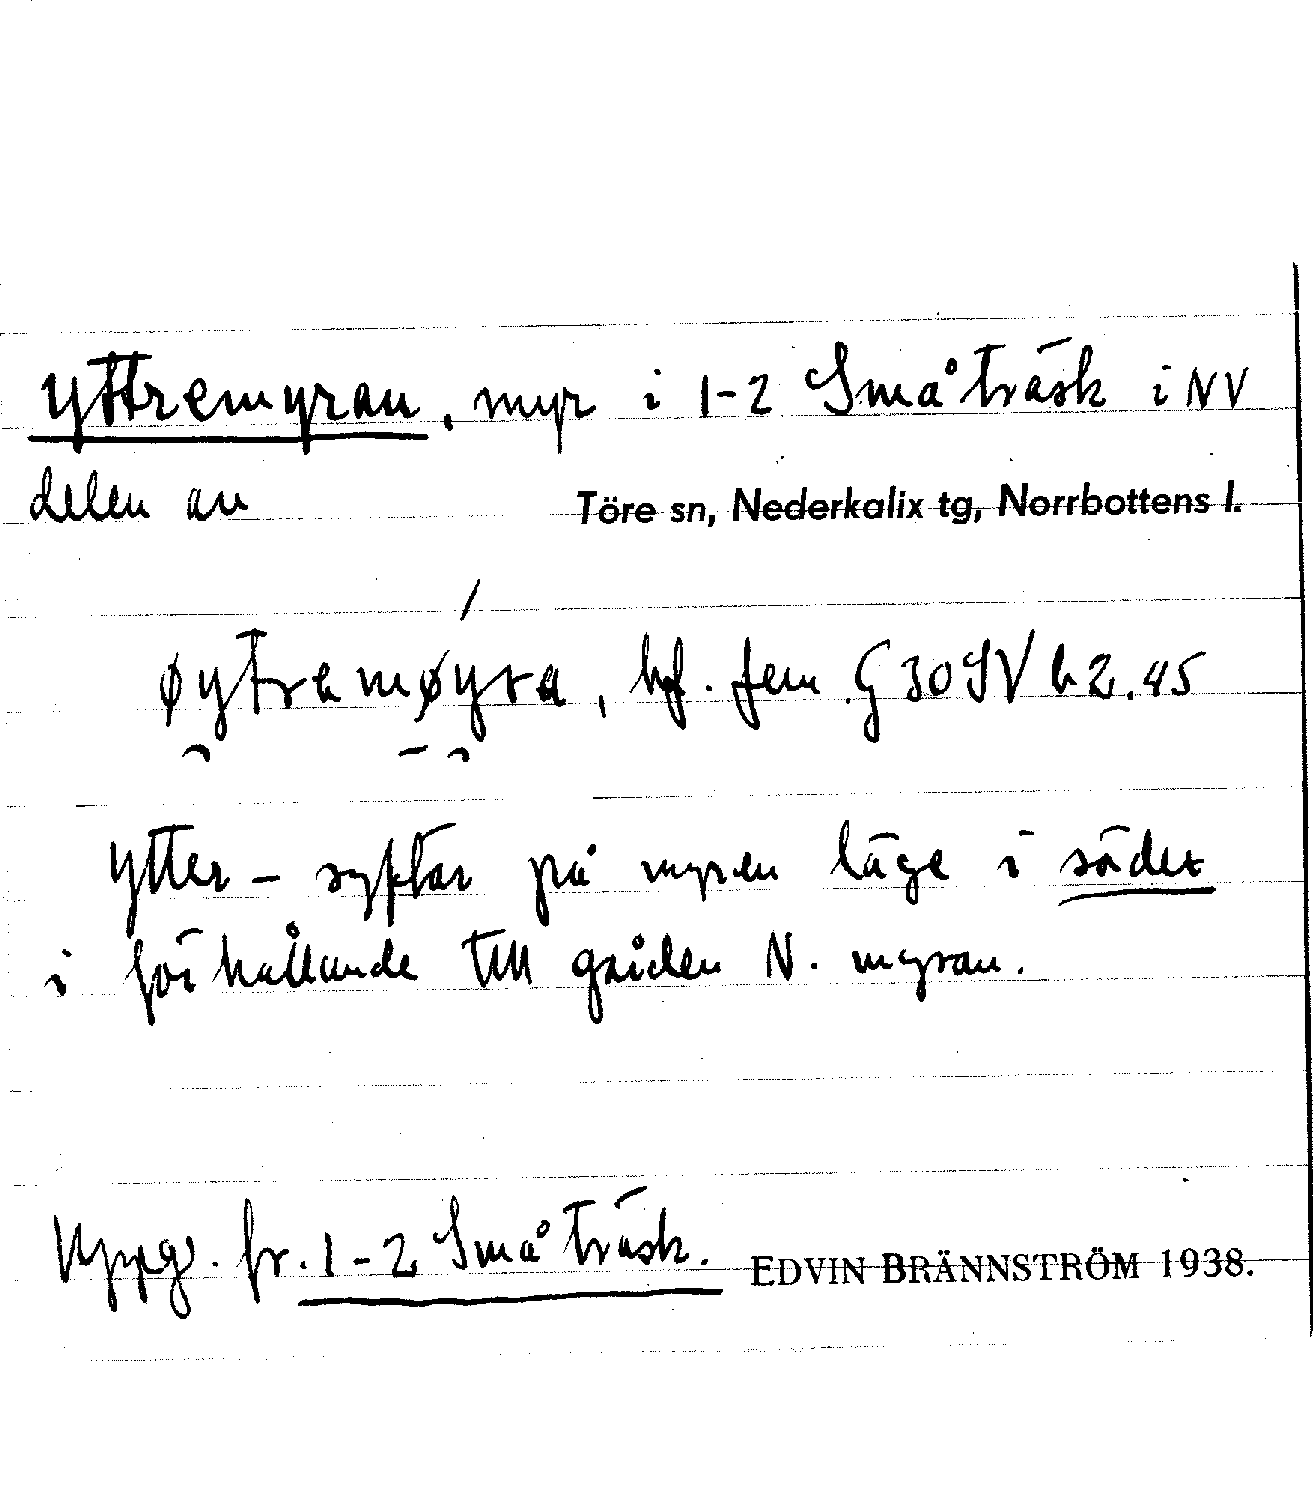 Yttremyran, myr i 1-2 Småträsk i NV
delen av Töre sn, Nederkalix tg, Norrbottens l.
øytramøyra, bf. fem G 30 SV b 2.45
Ytter- syftar på myren läge i söder
i förhållande till gården N. myran.
Uppg. fr. 1-2 Småträsk. EDVIN BRÄNNSTRÖM 1938.